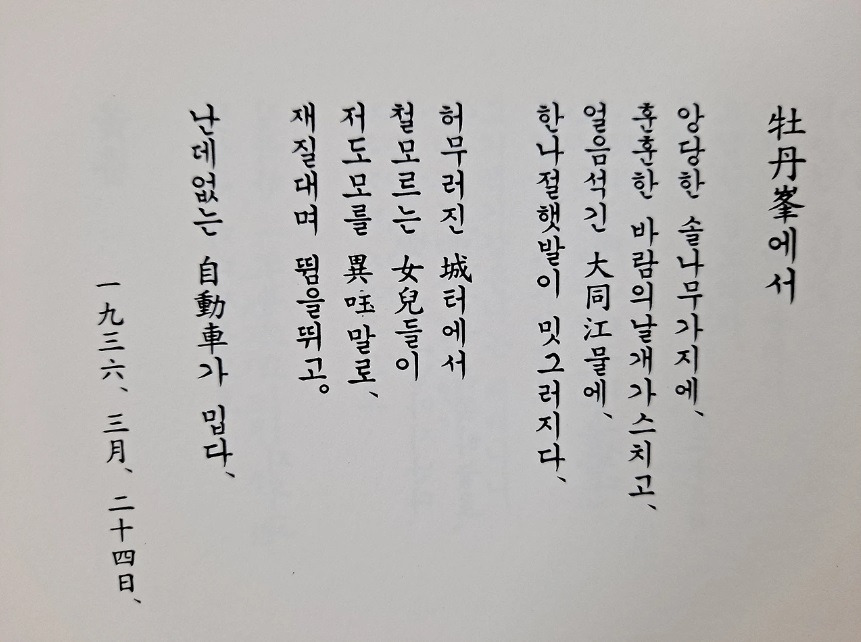 牡丹峯에서
앙당한 솔나무가지에、
훈훈한 바람의날개가스치고、
얼음석긴 大同江물에、
한나절햇발이 밋그러지다、
허무러진 城터에서
철모르는 女兒들이
저도모를 異国말로、
재질대며 뜀을뛰고。
난데없는 自動車가 밉다、
一九三六、三月、二十四日、